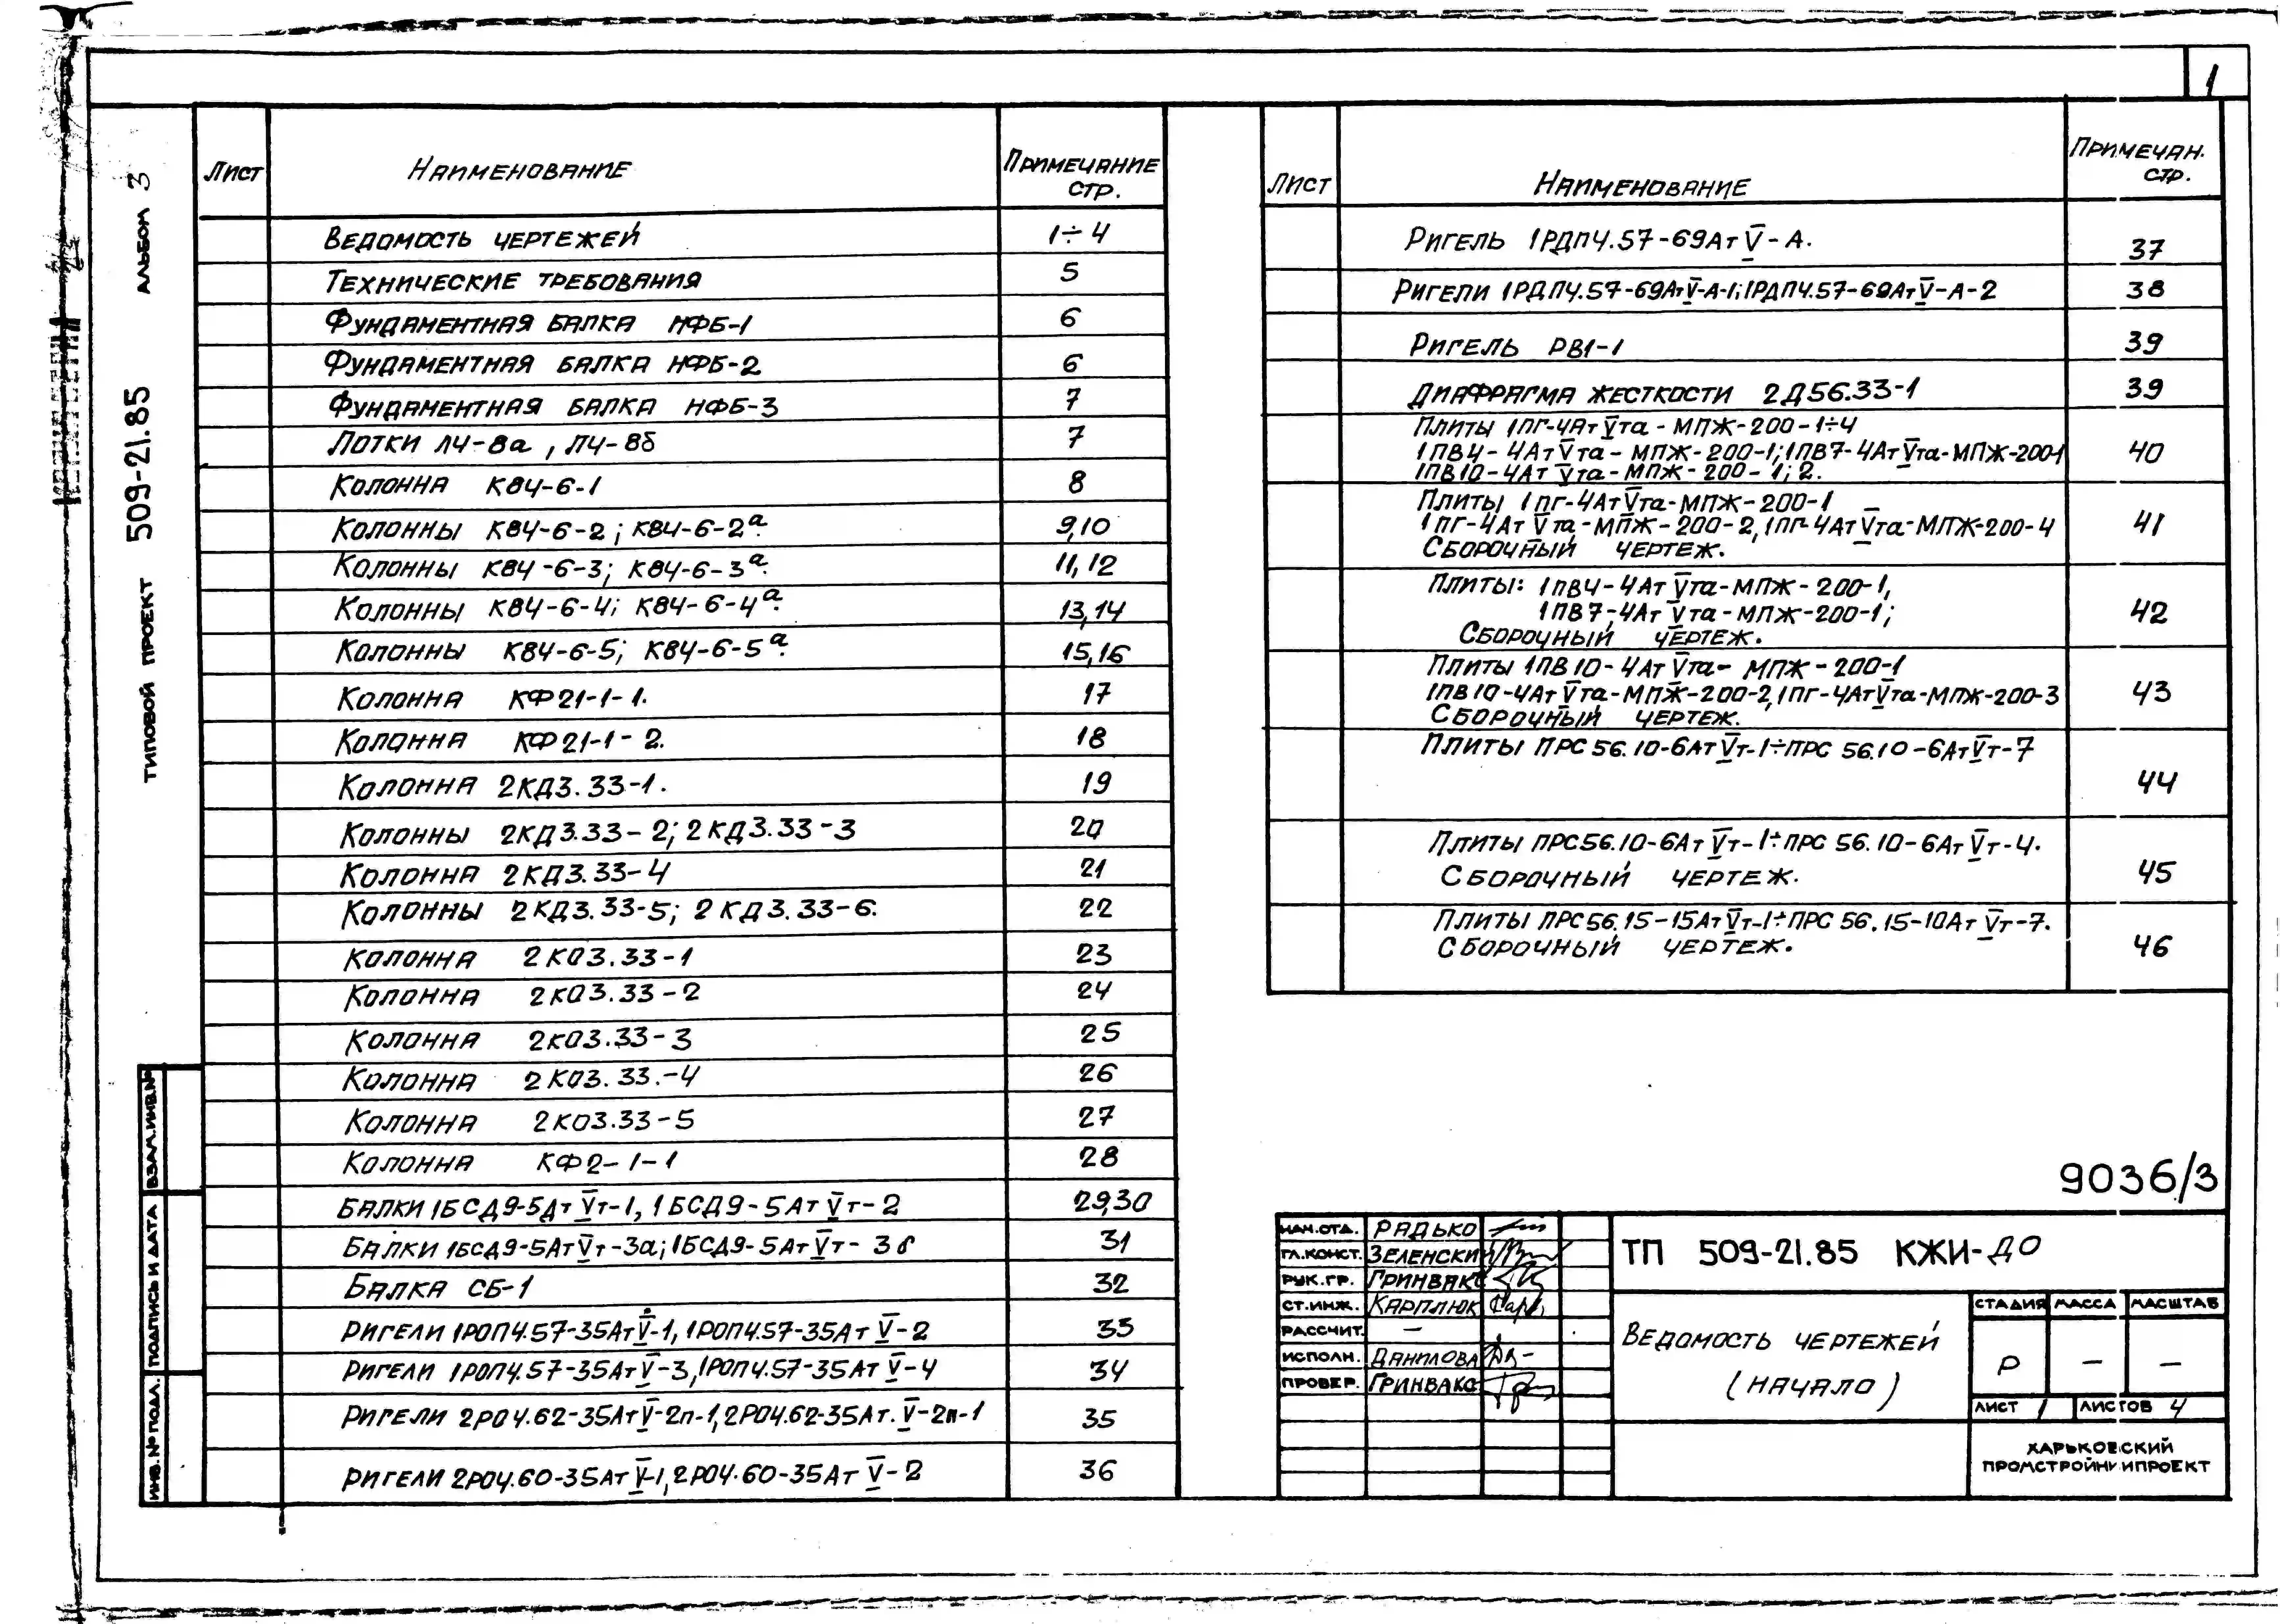 1
ТИПОВОЙ ПРОЕКТ 509-21.85 АЛЬБОМ 3
Лист Наименование Примечание стр.
Ведомость чертежей 1÷4
Технические требования 5
Фундаментная балка НФБ-1 6
Фундаментная балка НФБ-2 6
Фундаментная балка НФБ-3 7
Лотки Л4-8а, Л4-8б 7
Колонна К84-6-1 8
Колонны К84-6-2; К84-6-2а. 9,10
Колонны К84-6-3; К84-6-3а. 11,12
Колонны К84-6-4; К84-6-4а. 13,14
Колонны К84-6-5; К84-6-5а. 15,16
Колонна КФ21-1-1. 17
Колонна КФ21-1-2. 18
Колонна 2КД3.33-1. 19
Колонны 2КД3.33-2; 2КД3.33-3 20
Колонна 2КД3.33-4 21
Колонны 2КД3.33-5; 2КД3.33-6. 22
Колонна 2КО3.33-1 23
Колонна 2КО3.33-2 24
Колонна 2КО3.33-3 25
Колонна 2КО3.33.-4 26
Колонна 2КО3.33-5 27
Колонна КФ2-1-1 28
Балки 1БСД9-5АтVт-1, 1БСД9-5АтVт-2 29,30
Балки 1БСД9-5АтVт-3а; 1БСД9-5АтVт-3б 31
Балка СБ-1 32
Ригели 1РОП4.57-35АтV-1, 1РОП4.57-35АтV-2 33
Ригели 1РОП4.57-35АтV-3, 1РОП4.57-35АтV-4 34
Ригели 2РО4.62-35АтV-2п-1, 2РО4.62-35Ат.V-2н-1 35
Ригели 2РО4.60-35АтV-1, 2РО4.60-35АтV-2 36
Лист Наименование Примечан. стр.
Ригель 1РДП4.57-69АтV-А. 37
Ригели 1РДП4.57-69АтV-А-1; 1РДП4.57-69АтV-А-2 38
Ригель РВ1-1 39
Диафрагма жесткости 2Д56.33-1 39
Плиты 1ПГ-4АтVта-МПЖ-200-1÷4
1ПВ4-4АтVта-МПЖ-200-1; 1ПВ7-4АтVта-МПЖ-200-1 40
1ПВ10-4АтVта-МПЖ-200-1; 2.
Плиты 1ПГ-4АтVта-МПЖ-200-1
1ПГ-4АтVта-МПЖ-200-2, 1ПГ-4АтVта-МПЖ-200-4 41
Сборочный чертеж.
Плиты: 1ПВ4-4АтVта-МПЖ-200-1,
1ПВ7-4АтVта-МПЖ-200-1; 42
Сборочный чертеж.
Плиты 1ПВ10-4АтVта-МПЖ-200-1
1ПВ10-4АтVта-МПЖ-200-2, 1ПГ-4АтVта-МПЖ-200-3 43
Сборочный чертеж.
Плиты ПРС56.10-6АтVт-1÷ПРС 56.10-6АтVт-7
44
Плиты ПРС56.10-6АтVт-1÷ПРС 56.10-6АтVт-4.
Сборочный чертеж. 45
Плиты ПРС56.15-15АтVт-1÷ПРС 56.15-10АтVт-7.
Сборочный чертеж. 46
9036/3
НАЧ.ОТД. Радько
ГЛ.КОНСТ. Зеленский
РУК.ГР. Гринвакс
СТ.ИНЖ. Карплюк
РАССЧИТ. —
ИСПОЛН. Данилова
ПРОВЕР. Гринвакс
ТП 509-21.85 КЖИ-ДО
Ведомость чертежей
(начало)
СТАДИЯ МАССА МАСШТАБ
Р — —
ЛИСТ 1 ЛИСТОВ 4
ХАРЬКОВСКИЙ
ПРОМСТРОЙНИИПРОЕКТ
ИНВ.№ПОДЛ. ПОДПИСЬ И ДАТА ВЗАМ.ИНВ.№